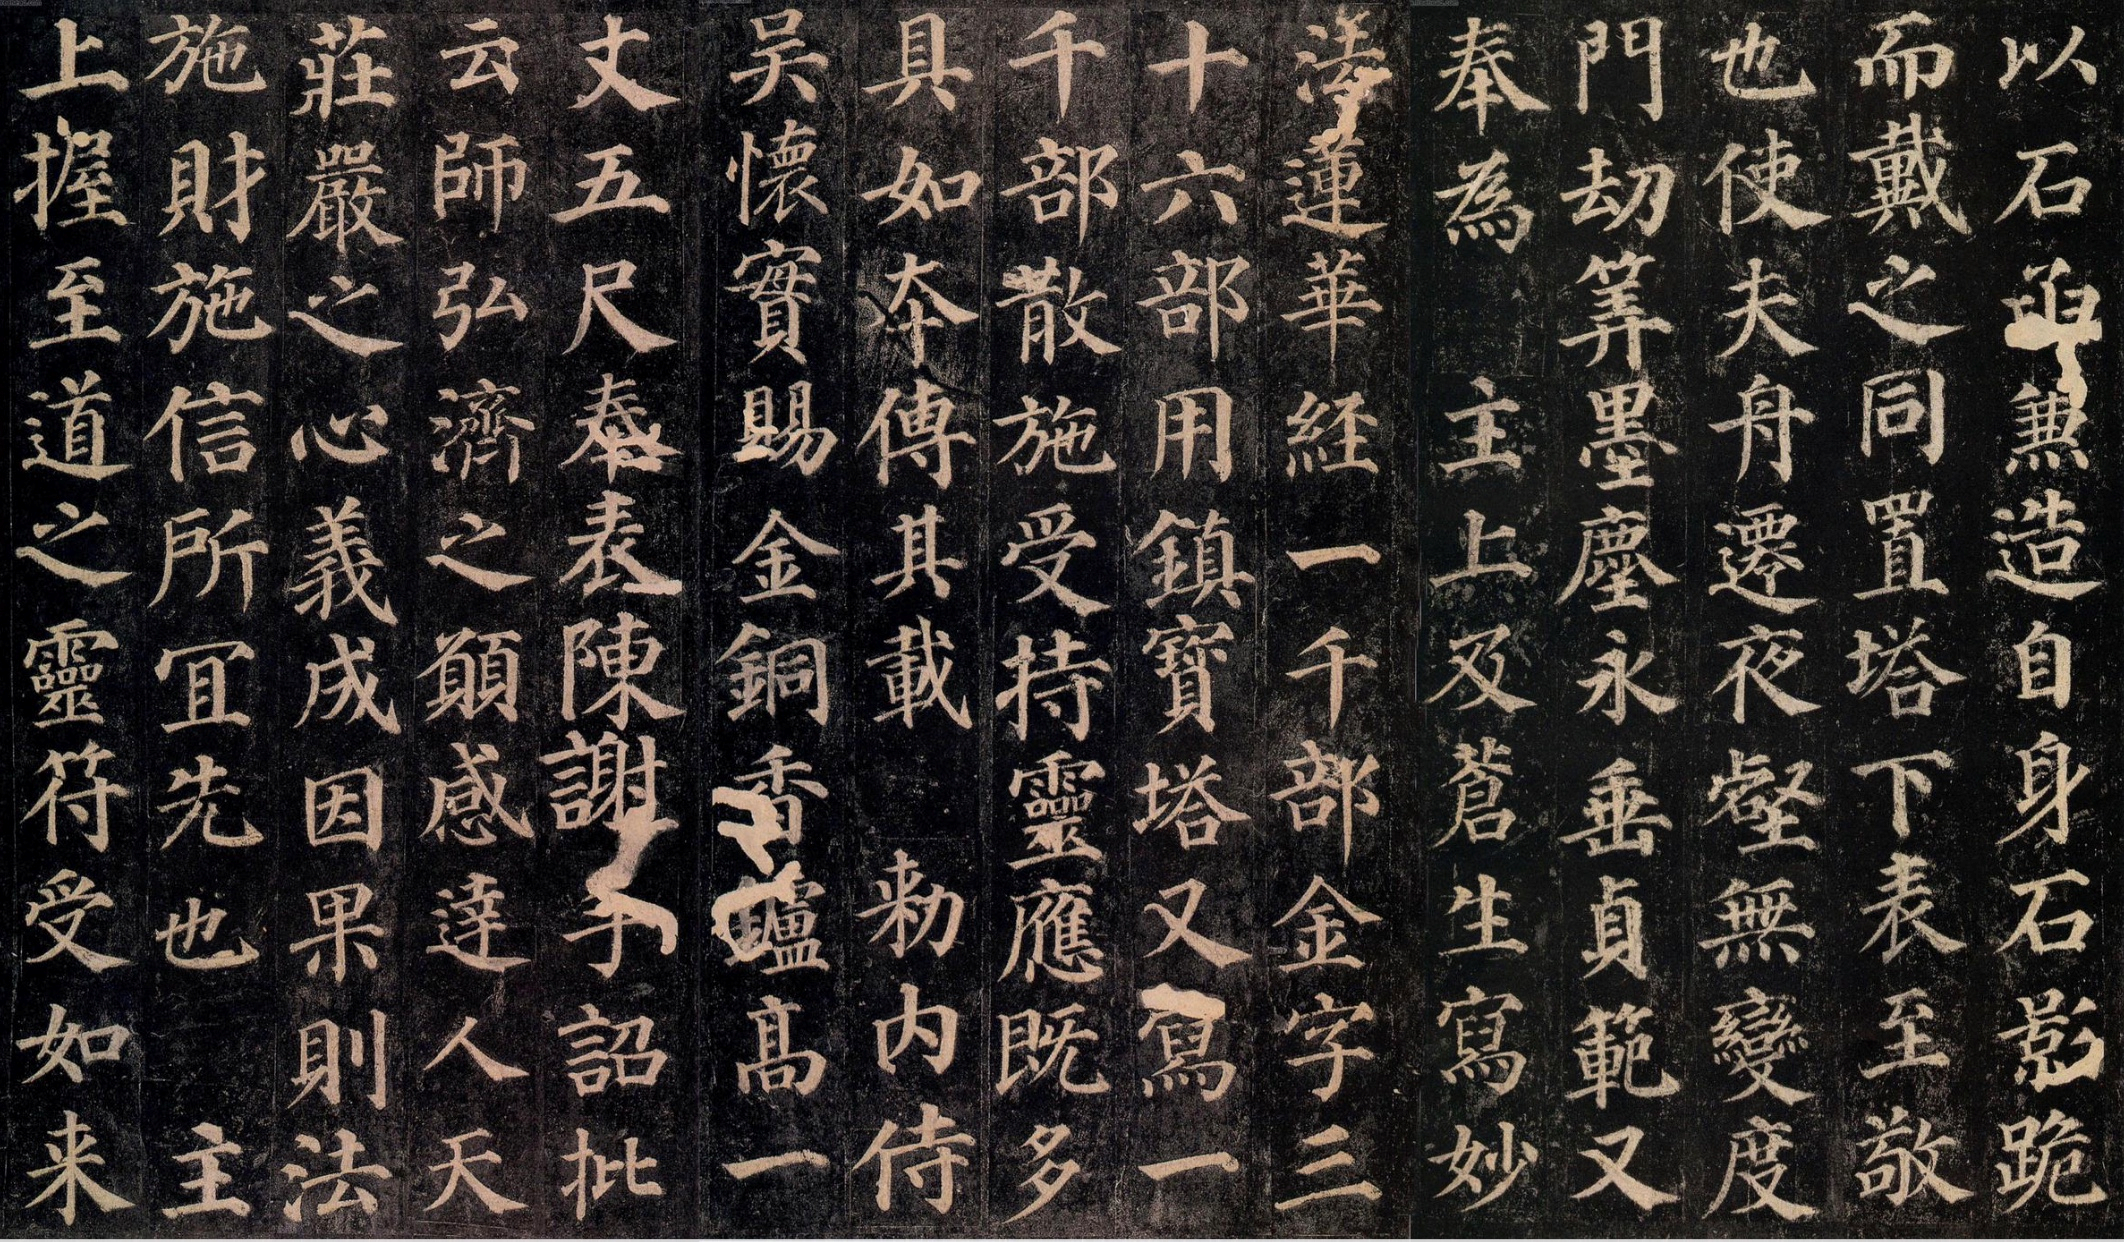 以石函兼造自身石影跪
而戴之同置塔下表至敬
也使夫舟遷夜壑無變度
門劫筭墨塵永垂貞範又
奉為　主上及蒼生寫妙
法蓮華經一千部金字三
十六部用鎮寶塔又寫一
千部散施受持靈應既多
具如本傳其載　勑内侍
吴懷實賜金銅香鑪高一
丈五尺奉表陳謝手詔批
云師弘濟之願感達人天
莊嚴之心義成因果則法
施財施信所宜先也　主
上握至道之靈符受如来